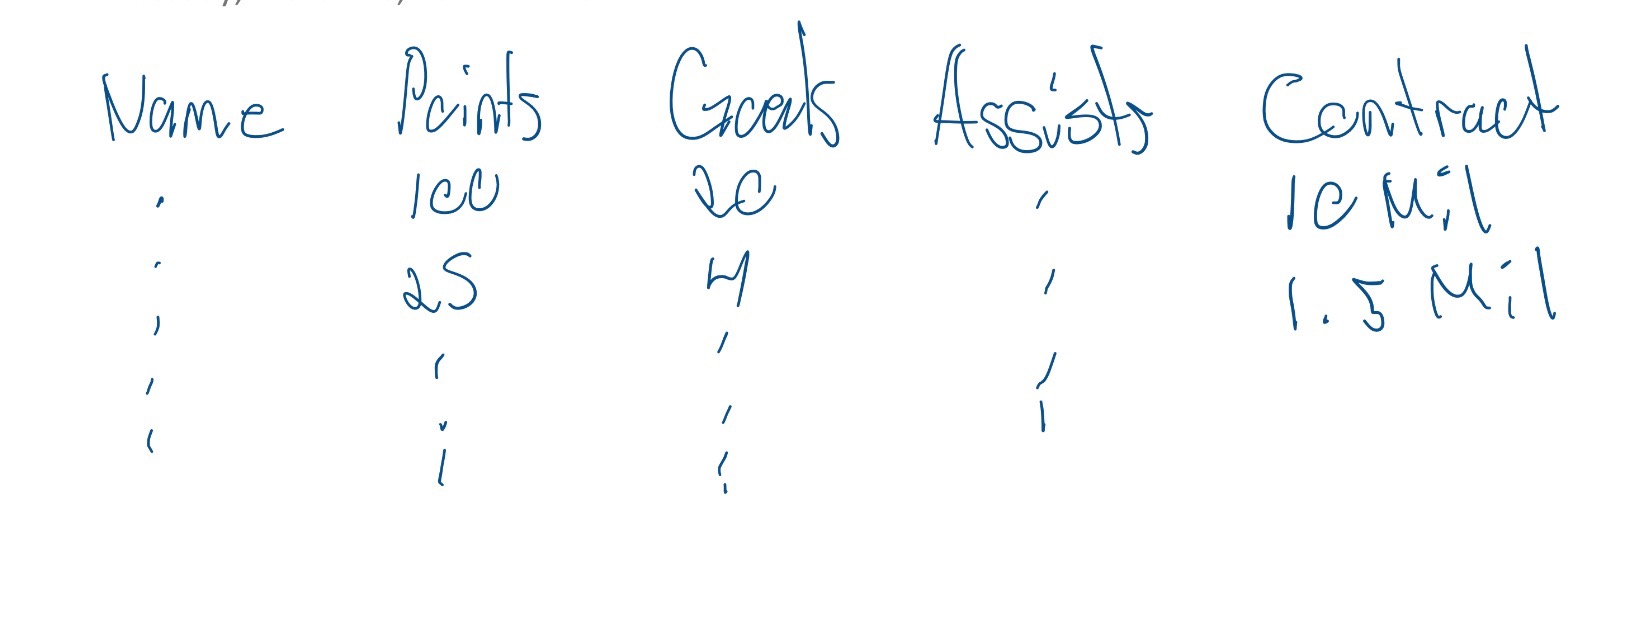 Name Points Goals Assists Contract
100 20 10 Mil
25 4 1.5 Mil